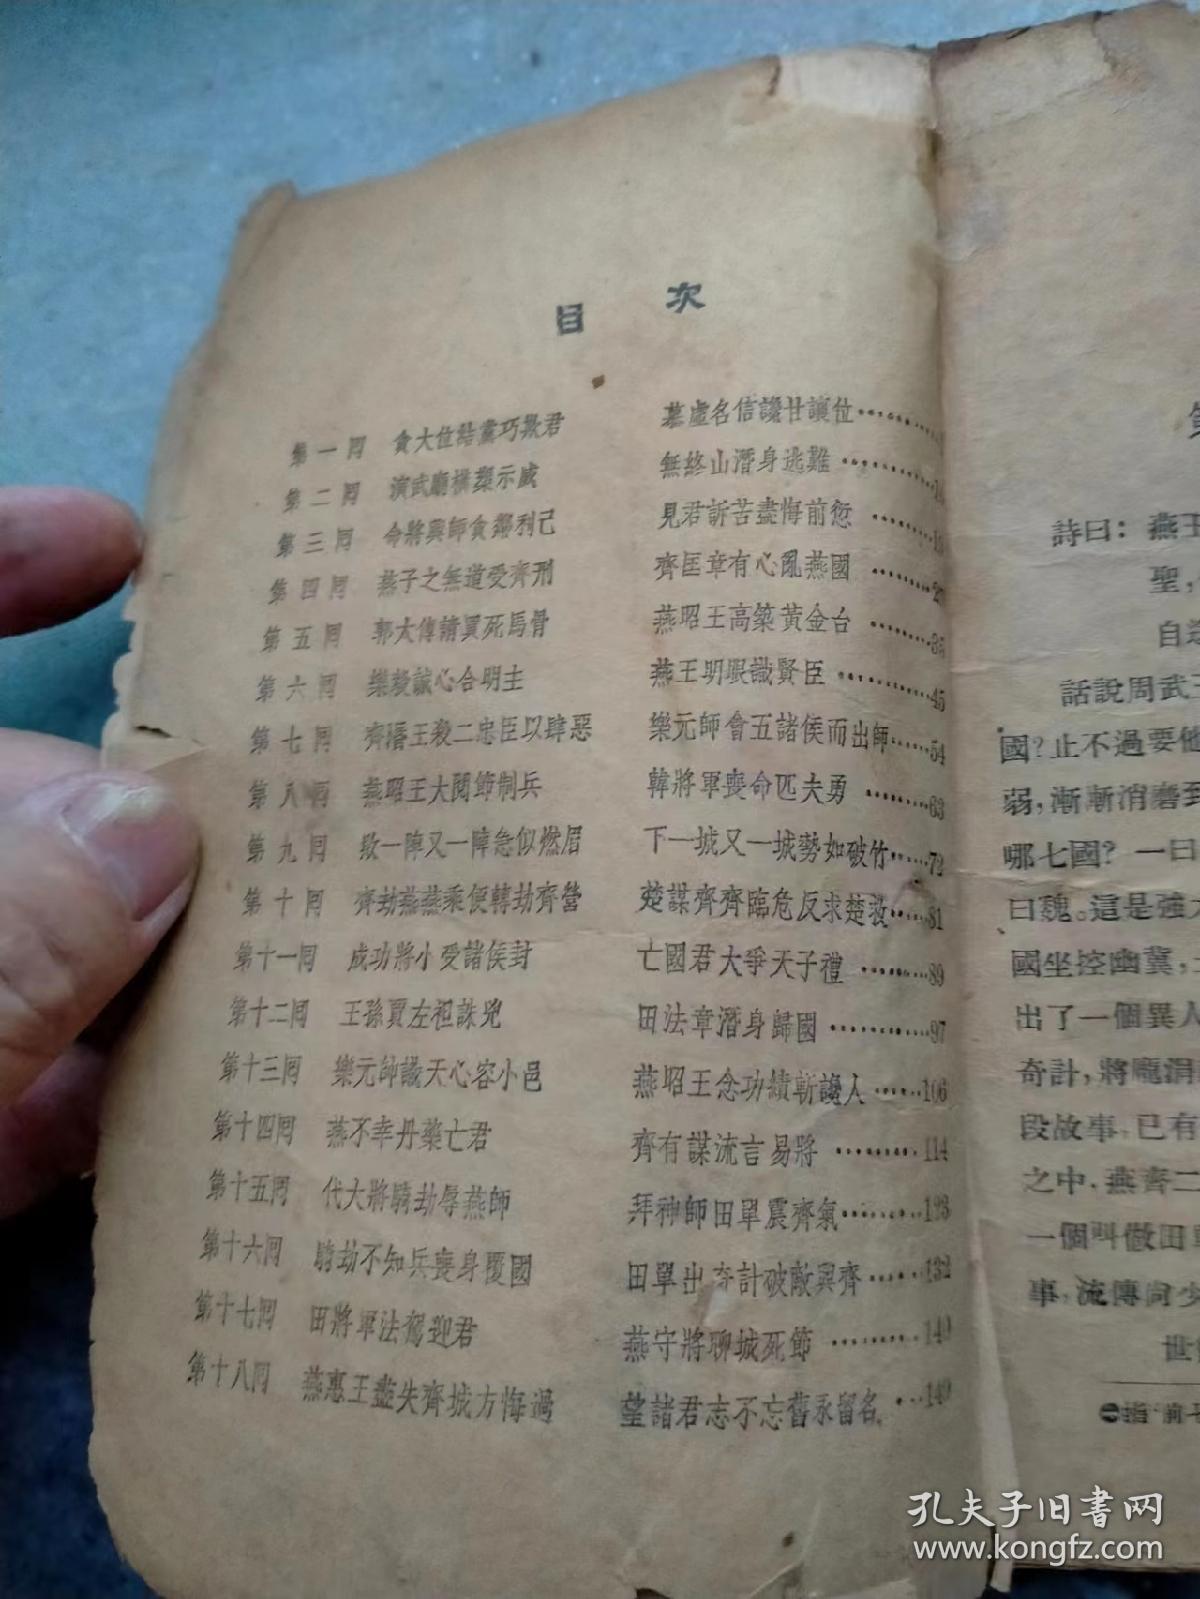 目 次
第一回 貪大位結黨巧欺君 慕虛名信讒甘讓位
第二回 演武廟構釁示威 無終山潛身逃難
第三回 命將興師貪鄰利己 見君訴苦盡悔前愆
第四回 燕子之無道受齊刑 齊匡章有心亂燕國
第五回 郭太傅請買死馬骨 燕昭王高築黃金台 35
第六回 樂毅誠心合明主 燕王明眼識賢臣 45
第七回 齊湣王殺二忠臣以肆惡 樂元師會五諸侯而出師 54
第八回 燕昭王大閱節制兵 韓將軍喪命匹夫勇 63
第九回 敗一陣又一陣急似燃眉 下一城又一城勢如破竹 72
第十回 齊劫燕燕乘便轉劫齊營 楚謀齊齊臨危反求楚救 81
第十一回 成功將小受諸侯封 亡國君大爭天子禮 89
第十二回 王孫賈左袒誅兇 田法章潛身歸國 97
第十三回 樂元帥識天心容小邑 燕昭王念功績斬讒人 106
第十四回 燕不幸丹藥亡君 齊有謀流言易將 114
第十五回 代大將騎劫辱燕師 拜神師田單震齊氣 123
第十六回 騎劫不知兵喪身覆國 田單出奇計破敵興齊 132
第十七回 田將軍法駕迎君 燕守將聊城死節 140
第十八回 燕惠王盡失齊城方悔過 望諸君志不忘舊永留名 149
詩曰：燕王
聖，
自
話說周武王
國？止不過要他
弱，漸漸消磨到
哪七國？一曰
曰魏。這是強大
國坐控幽冀，
出了一個異人
奇計，將龐涓
段故事，已有
之中，燕齊二
一個叫做田單
事，流傳尚少
世
孔夫子旧书网
www.kongfz.com